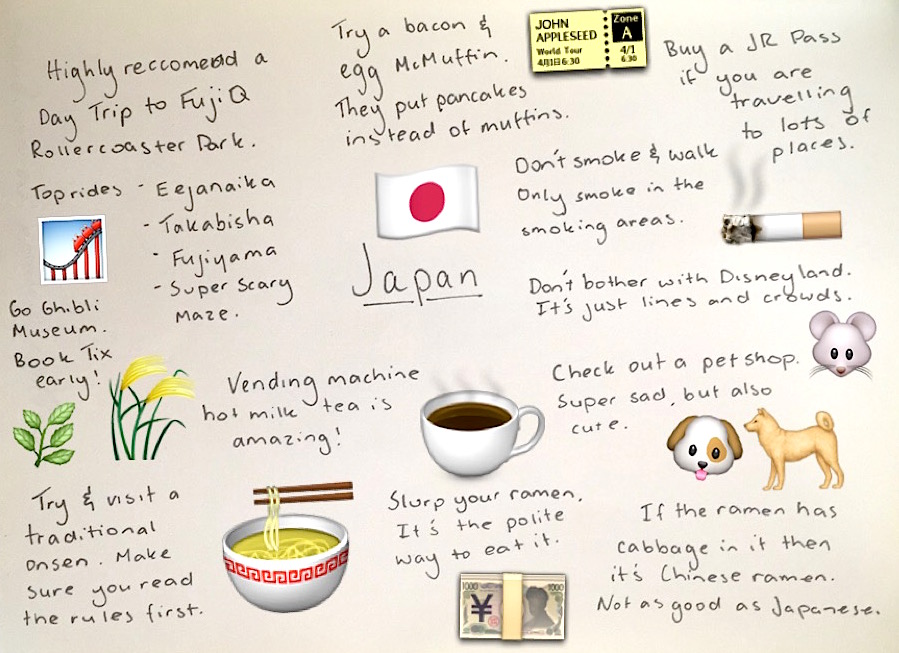 Highly reccomedd a
Day Trip to FujiQ
Rollercoaster Park.
Top rides - Eejanaika
- Takabisha
- Fujiyama
- Super Scary
Maze.
Go Ghibli
Museum.
Book Tix
early!
Try a bacon &
egg McMuffin.
They put pancakes
instead of muffins.
JOHN
APPLESEED
World Tour
4月1日 6:30
Zone
A
4/1
6:30
Buy a JR Pass
if you are
travelling
to lots of
places.
Don't smoke & walk
Only smoke in the
smoking areas.
Japan
Don't bother with Disneyland.
It's just lines and crowds.
Vending machine
hot milk tea is
amazing!
Check out a petshop.
Super sad, but also
cute.
Try & visit a
traditional
onsen. Make
sure you read
the rules first.
Slurp your ramen.
It's the polite
way to eat it.
1000
1000
¥
If the ramen has
cabbage in it then
it's Chinese ramen.
Not as good as Japanese.